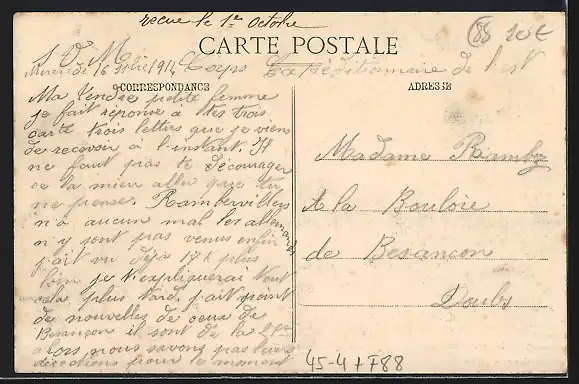 recue le 1er Octobre
88 20€
S. V. M.
CARTE POSTALE
Mercredi 16 7bre 1914 Corps Expéditionnaire de l'est
CORRESPONDANCE
ADRESSE
Ma tendre petite femme
je fait reponse a tes trois
carte trois lettres que je viens
de recevoir à l'instant. Il
ne faut pas te décourager
ce la mieu aller que tu
ne pense. Rambervillers
n'a aucun mal les allemands
n'y sont pas venus enfin
j'ait vu deja plus
loin je t'expliquerai tout
cela plus tard. j'ait point
de nouvelles de ceux de
Besançon il sont de la
alors nous savons pas leurs
directions pour le moment
Madame Ramboz
A la Bouloie
de Besancon
Doubs
45-4 + F88